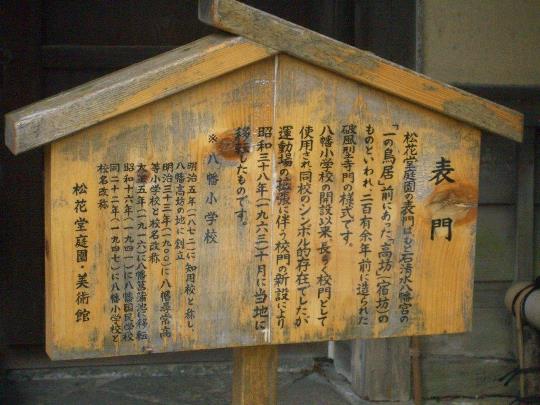 表門
松花堂庭園の表門はもと石清水八幡宮の
「一の鳥居」前にあった「高坊」(宿坊)の
ものといわれ、二百有余年前に造られた
破風型寺門の様式です。
八幡小学校の開設以来、長らく校門として
使用され同校のシンボル的存在でしたが、
運動場の拡張に伴う校門の新設により
昭和三十八年(一九六三)十月に当地に
移転したものです。
※八幡小学校
明治五年(一八七二)に知用校と称し、
八幡高坊の地に創立
明治三十三年(一九〇〇)に八幡尋常高
等小学校と校名改称
大正五年(一九一六)に八幡菖蒲池に移転
昭和十六年(一九四一)に八幡国民学校
同二十二年(一九四七)に八幡小学校と
校名改称
松花堂庭園・美術館